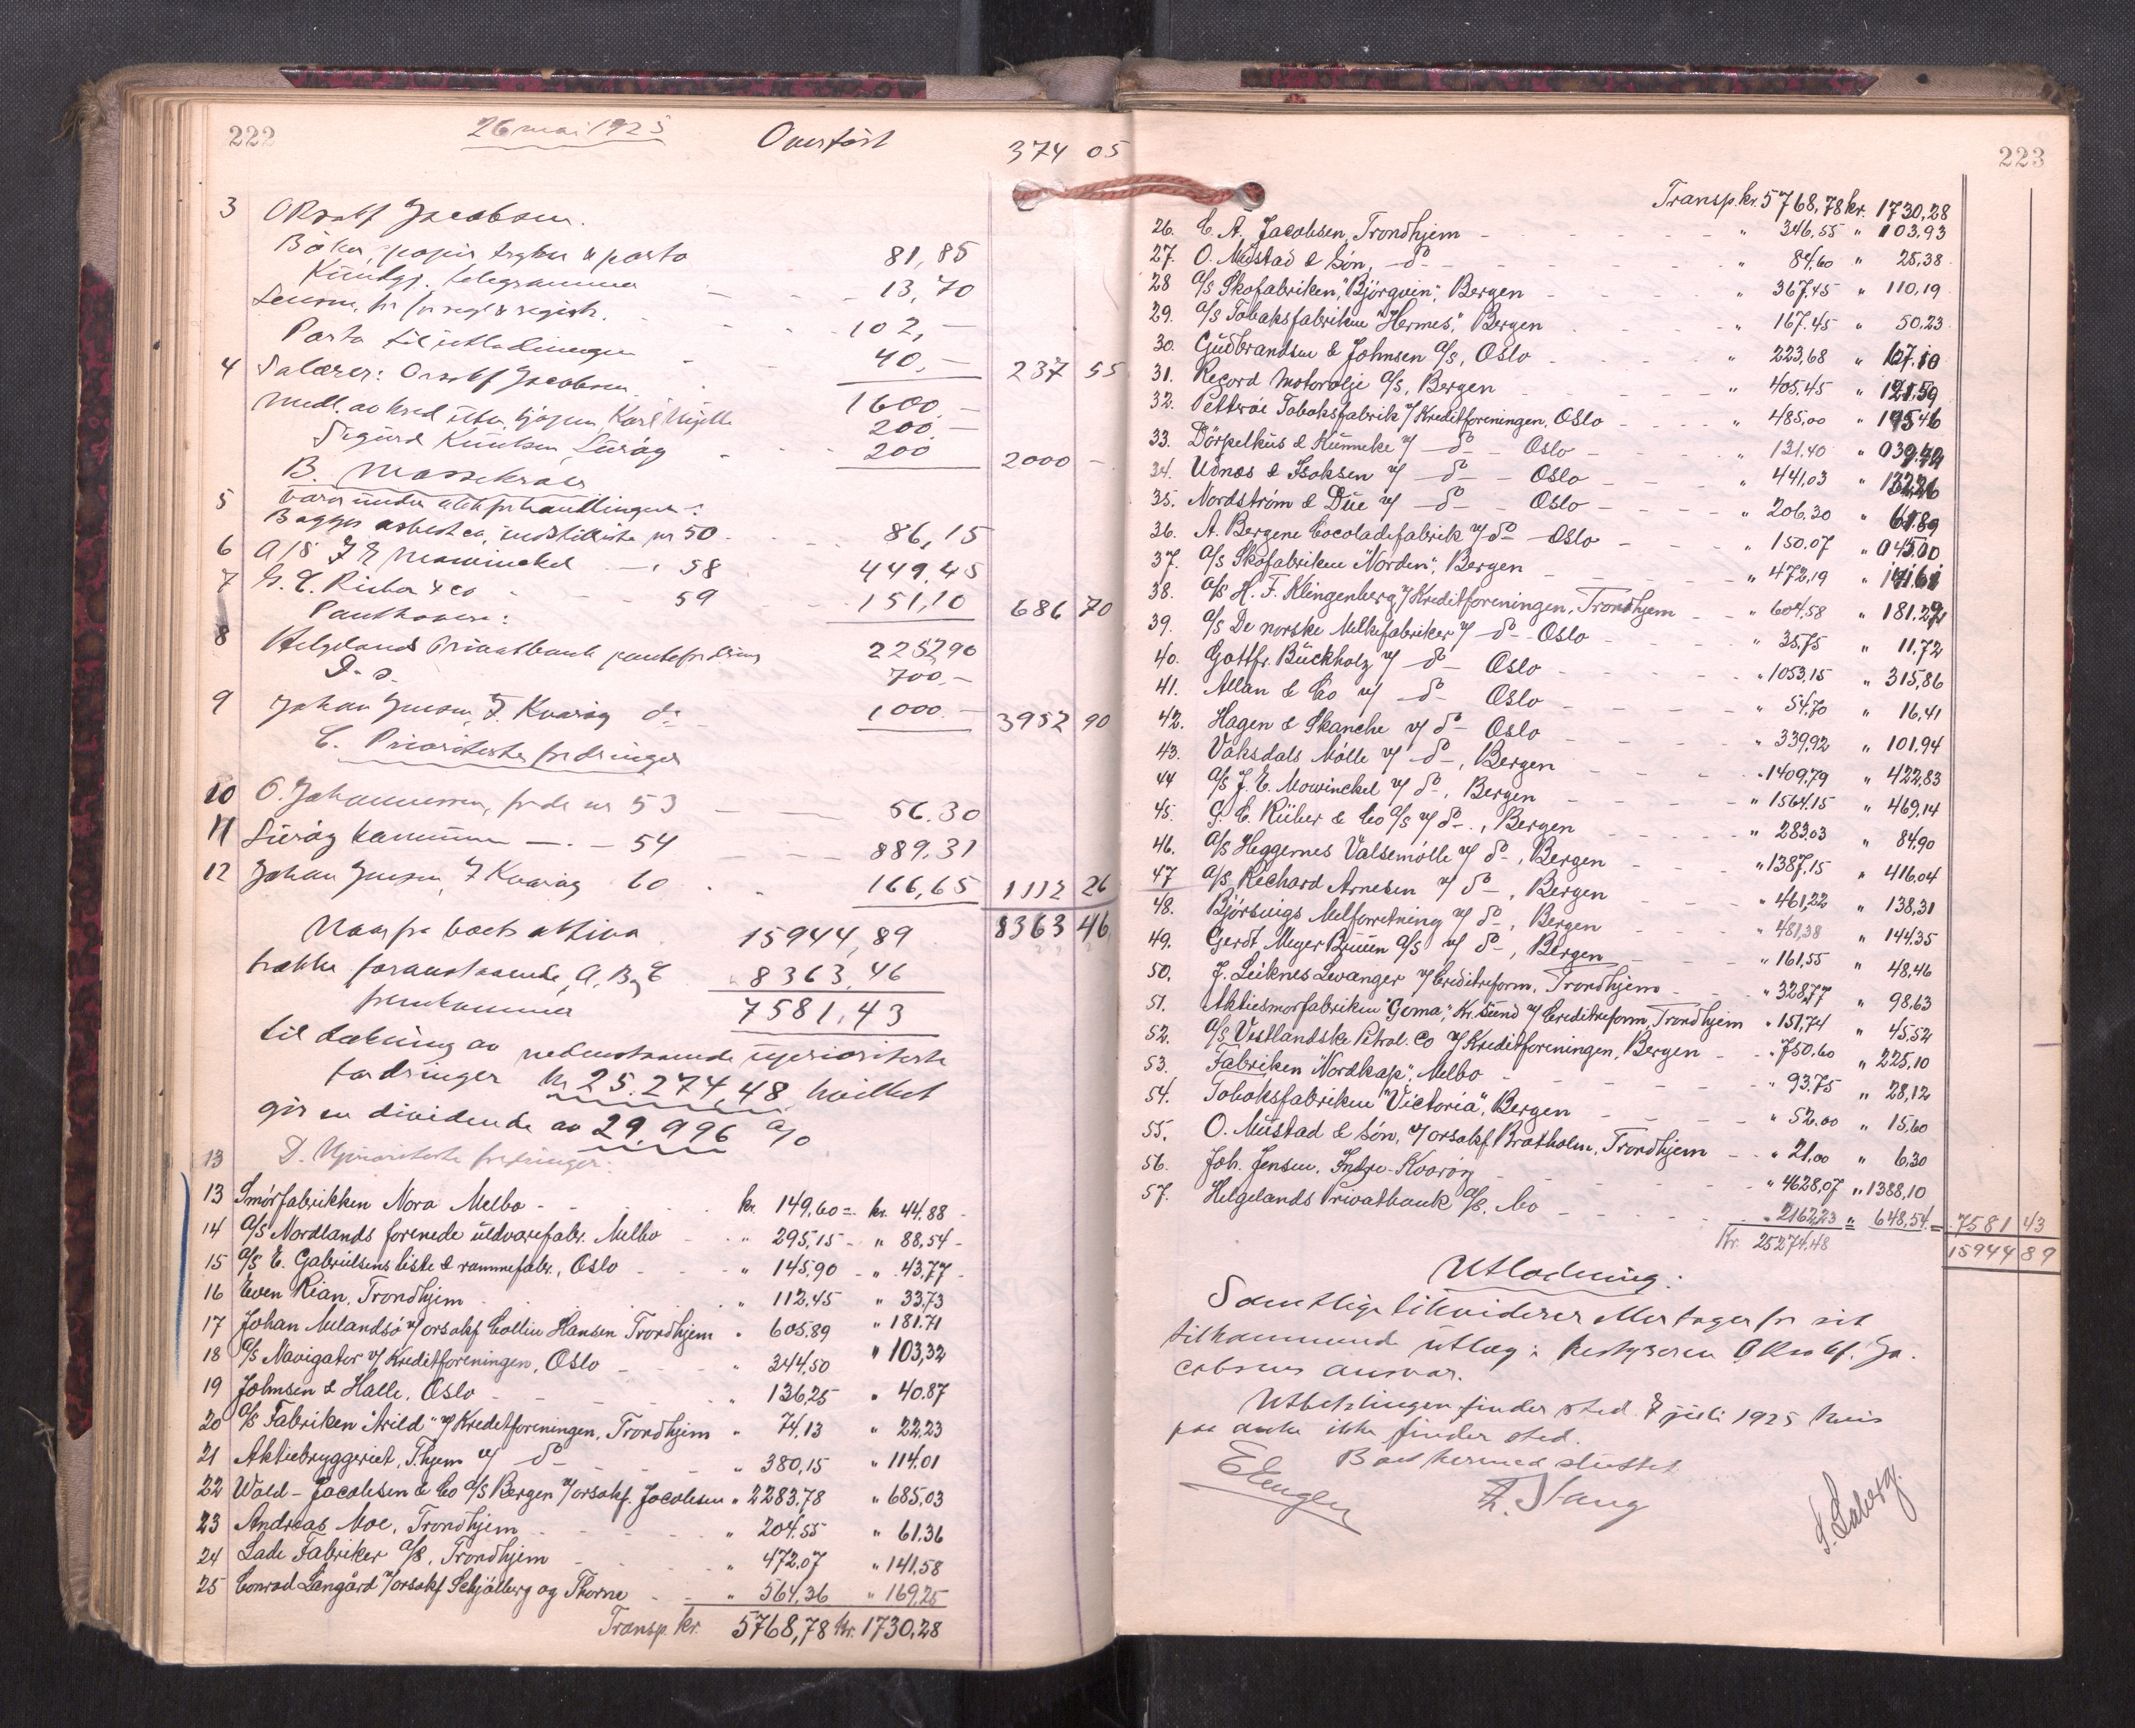 222
26 mai 1925 Overført 374 05
3 ORsakf Jacobsen.
Bøker, papir trykn & porto 81,85
Kundgj. telegrammer - - 13,70
102,-
Porto til utlodningen - 40,- 237 55
4 Salærer: Orsakf Jacobsen 1600.-
medl. av kred utv. Karl 200.-
Sigurd Knutsen, Lurøy - 200 2000 -
B. Massekrav
5 Varer under akkfrhandlingen:
Bagges asbest co, indstilliste nr 50 - 86,15
6 A/S J E Mowinckel -"- 58 449,45
7 G. C. Rieber & co - - - 59 - 151,10 686 70
Panthavere:
8 Helgelands Privatbank pantefordring 2252 90
D. o. 700,-
9 Johan Jensen, I. Kvarøy do - 1000.- 3952 90
C. Prioriterte fordringer
10 O. Johannessen, frdr nr 53 - 56.30
11 Lurøy kommune -.- 54 - 889,31
12 Johan Jensen, I Kvarøy 60 . . 166,65 1112 26
8363 46
Naar fra boets aktiva 15944,89
trækkes foranstaaende, A, B og C " 8363,46
fremkommer 7581,43
til dækning av nedenstaaende uprioriterte
fordringer kr 25.274,48 hvilket
gir en dividende av 29,996 %
13 D. Uprioriterte fordringer:
13 Smørfabrikken Nora Melbo - - kr. 149,60 = kr. 44,88 -
14 A/S Nordlands forenede uldvarefabr. Melbo - " 295,15 - " 88,54 -
15 A/S E. Gabrielsens liste & rammefabr., Oslo - - " 145,90 - " 43,77 -
16 Even Rian, Trondhjem " 112,45 " 33,73
17 Johan Melandsø v/orsakf Collin Hansen Trondhjem " 605,89 " 181.71
18 A/S Navigator v/ Kreditforeningen, Oslo - - " 344,50 " 103,32
19 Johnsen & Halle, Oslo - - " 136,25 " 40.87
20 A/S Fabriken "Arild" v/ Kreditforeningen, Trondhjem " 74,13 " 22,23
21 Aktiebryggeriet, T.hjem v/ do - - " 380,15 " 114.01
22 Wold-Jacobsen & Co A/S Bergen v/orsakf. Jacobsen " 2283.78 " 685,03
23 Andreas Moe, Trondhjem - - " 204.55 " 61.36
24 Lade Fabriker A/S, Trondhjem - " 472.07 " 141,58
25 Conrad Langård v/orsakf Schjølberg og Thorne - - " 564,36 " 169,25
Transp. kr. 5768,78 kr. 1730,28
223
Transp. kr. 5768,78 kr. 1730,28
26. C. A. Jacobsen, Trondhjem - - " 346.55 " 103.93
27. O. Mustad & Søn, - do - - " 84,60 " 25,38
28 A/S Skofabriken "Bjørgvin", Bergen - - " 367,45 " 110,19
29. A/S Tobaksfabriken "Hermes", Bergen - - " 167.45 " 50.23
30. Gudbrandsen & Johnsen A/S, Oslo - - " 223,68 " 67.10
31. Record Motorolje A/S, Bergen - - " 405.45 " 121,59
32. Petterøe Tobaksfabrik v/ Kreditforeningen, Oslo - - " 485,00 " 145.46
33. Dørpelkus & Künneke v/ - do - Oslo - - " 131.40 " 39.42
34. Udnæs & Isaksen v/ - do - Oslo - - " 441,03 " 132,26
35. Nordstrøm & Due v/ - do - Oslo - - " 206.30 " 61.89
36. A. Bergene Cocoladefabrik v/ do - Oslo - - " 150.07 " 45.00
37. A/S Skofabriken "Norden", Bergen - - " 472,19 " 141.61
38. A/S H. F. Klingenberg v/ Kreditforeningen, Trondhjem - - " 604,58 " 181.29
39. A/S De norske Melkefabriker v/ - do - Oslo - - " 35,75 " 11.72
40. Gottfr. Buckholz v/ - do - Oslo - - " 1053,15 " 315,86
41. Allan & Co v/ - do - Oslo - - " 54,70 " 16,41
42. Hagen & Skanche v/ do - Oslo - - " 339,92 " 101,94
43. Vaksdals Mølle v/ - do -, Bergen - - " 1409,79 " 422,83
44 A/S J. E. Mowinckel v/ do -, Bergen - - " 1564.15 " 469,14
45. G. C. Rieber & Co A/S v/ do -, Bergen - - " 283.03 " 84,90
46. A/S Heggernes Valsemølle v/ do -, Bergen - - " 1387,15 " 416.04
47 A/S Richard Arnesen v/ do -, Bergen - - " 461,22 " 138,31
48. Bjørsvigs Melforretning v/ do -, Bergen - - " 481,38 " 144.35
49. Gerdt Meyer Bruun A/S v/ do -, Bergen - - " 161,55 " 48,46
50. J. Leiknes Levanger v/ Creditreform, Trondhjem - - " 328,77 " 98.63
51. Aktiesmørfabriken "Goma", Kr.sund v/ Creditreform, Trondhjem " 151,74 " 45.52
52. A/S Vestlandske Petrol. Co v/ Kreditforeningen, Bergen - - " 750.60 " 225,10
53. Fabriken "Nordkap", Melbo - - " 93.75 " 28,12
54. Tobaksfabriken "Victoria", Bergen - - " 52.00 " 15,60
55. O. Mustad & Søn, v/ orsakf. Bratholm, Trondhjem - - " 21,00 " 6,30
56. Joh. Jensen, Indre-Kvarøy - - " 4628,07 " 1388,10
57. Helgelands Privatbank A/S, Mo - - " 2162,23 = " 648,54 = 7581 43
Kr. 25274.48 15944 89
Utlodning:
Samtlige likviderer Mottager for sit
tilkommende utlæg i bestyreren ORsakf. Ja-
cobsens ansvar.
Utbetalingen finder sted 7 juli 1925 hvis
paa anke ikke finder sted.
Boet hermed sluttet.